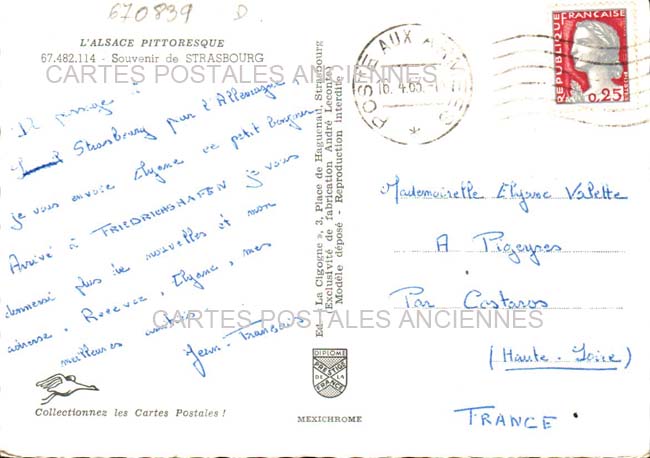 670839 D.
L'ALSACE PITTORESQUE
67.482.114 - Souvenir de STRASBOURG
CARTES POSTALES ANCIENNES
De passage à
Strasbourg pour l'Allemagne
je vous envoie Elyane ce petit bonjour
Arrivé à FRIEDRICHSHAFEN je vous
donnerai plus de nouvelles et mon
adresse. Recevez, Elyane, mes
meilleures amitiés
Jean-François
CARTES POSTALES ANCIENNES
Collectionnez les Cartes Postales !
Ed. « La Cigogne », 3, Place de Haguenau, Strasbourg
(Exclusivité de fabrication André Leconte)
Modèle déposé - Reproduction Interdite
DIPLOME
PRESTIGE
DE LA
FRANCE
MEXICHROME
POSTE AUX ARMEES
16.4.65
REPUBLIQUE FRANCAISE
0,25
Mademoiselle Elyane Valette
A Pigeyres
Par Costaros
(Haute-Loire)
FRANCE